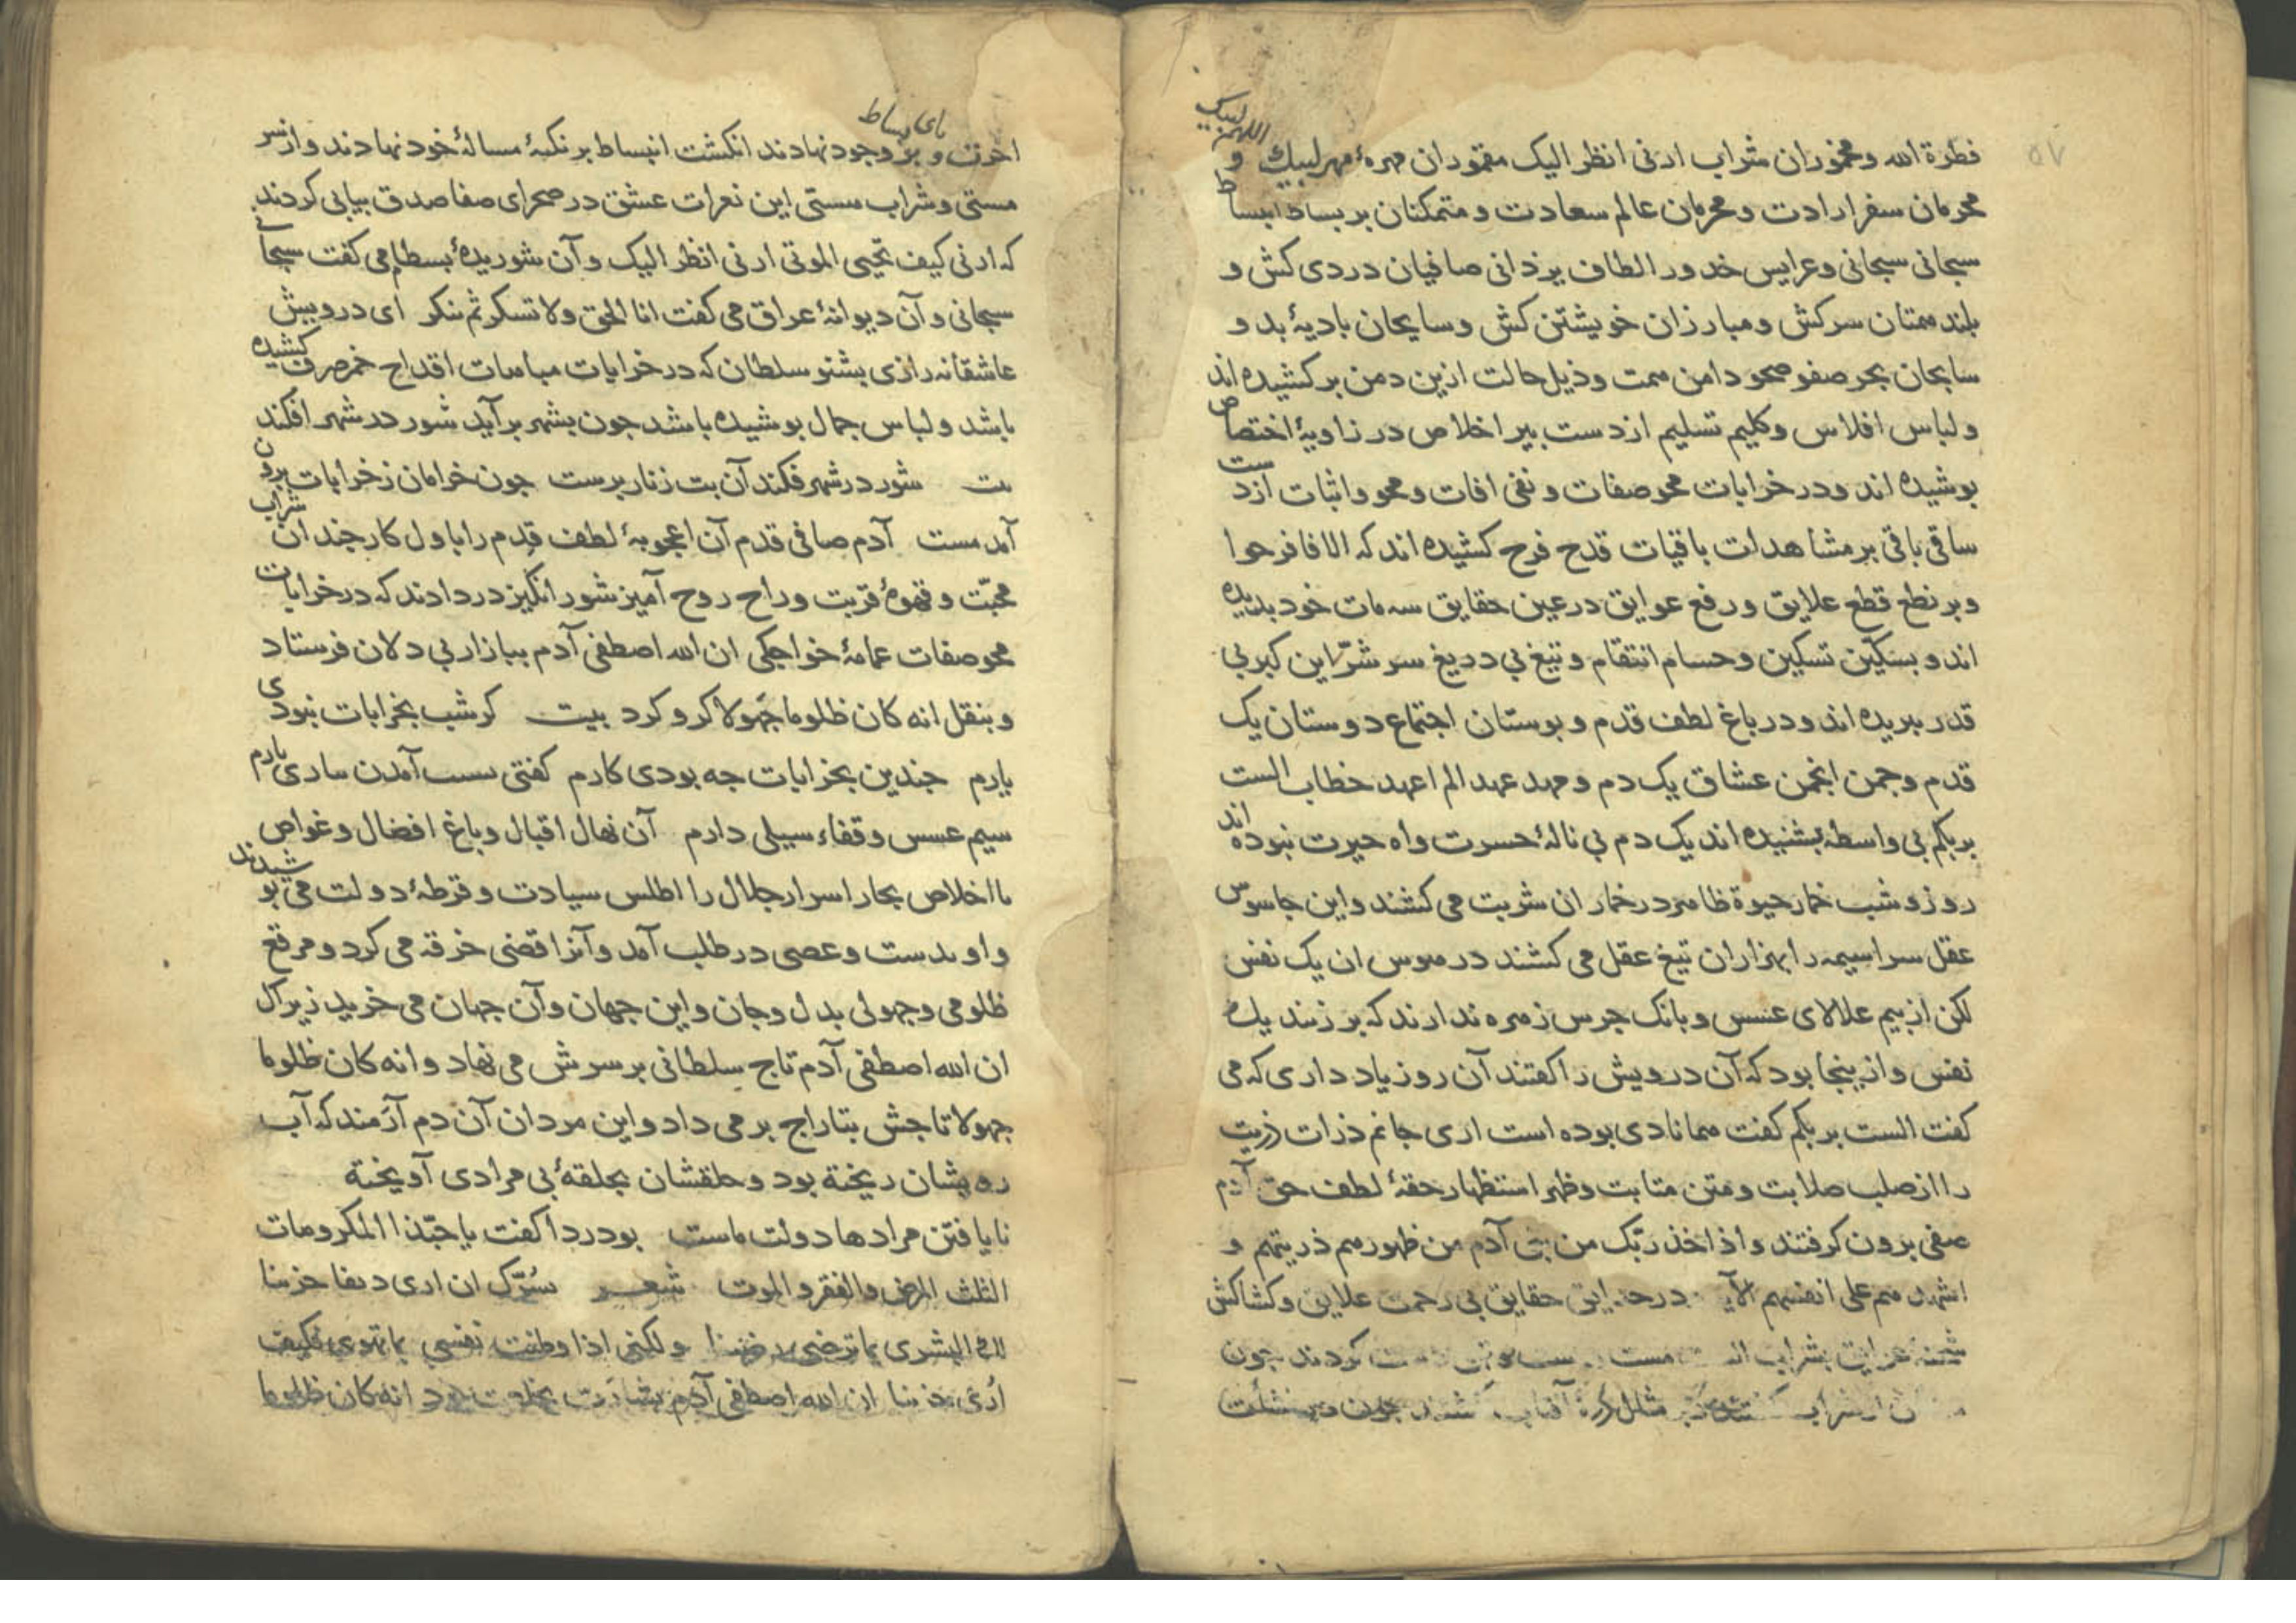 ۵۷
اللهم لبیک
فطرة الله و مخموران شراب ارنی انظر الیک مقموران مهرهٔ مهر لبیک و
محرمان سفر ارادت و محرمان عالم سعادت و متمکنان بر بساط انبساط
سبحانی سبحانی و عرایس خدور الطاف یزدانی صافیان دردی کش و
بلند همتان سرکش و مبارزان خویشتن کش و سایحان بادیهٔ بد و
سابحان بحر صفو صحو دامن همت و ذیل حالت ازین دمن برکشیده اند
و لباس افلاس و کلیم تسلیم از دست بیر اخلاص در زاویهٔ اختصاص
بوشیده اند و در خرابات محو صفات و نفی افات و محو و اثبات از دست
ساقی باقی بر مشاهدات باقیات قدح فرح کشیده اند که الا فافرحوا
و بر نطع قطع علایق و رفع عوایق در عین حقایق سه مات خود بدیده
اند و بسکین تسکین و حسام انتقام و تیغ بی دریغ سر شر این کبر بی
قدر ببریده اند و در باغ لطف قدم و بوستان اجتماع دوستان یک
قدم و جمن انجمن عشاق یک دم و مهد عهد الم اعهد خطاب الست
بربکم بی واسطه بشنیده اند یک دم بی نالهٔ حسرت و اه حیرت نبوده اند
روز و شب خمار حیوة ظاهر در خمار ان شربت می کشند و این جاسوس
عقل سراسیمه را بهزاران تیغ عقل می کشند در هوس ان یک نفس
لکن از بیم علالای عسس و بانک جرس زهره ندارند که بر زنند یک
نفس و ازینجا بود که آن درویش را کفتند آن روز یاد داری که می
کفت الست بربکم کفت همانا دی بوده است اری جانم ذرات ذریت
را از صلب صلابت و متن متابت و ظهر استظهار حقهٔ لطف حق آدم
صفی برون کرفتند و اذ اخذ ربک من بنی آدم من ظهورهم ذریتهم و
اشهدهم علی انفسهم الآیه در حدایق حقایق بی زحمت علایق و کشاکش
شحنه عوایق بشراب الست مست کردند جون
از شراب
بای بساط
اخوت و بر وجود نهادند انکشت انبساط بر نکتهٔ مسالهٔ خود نهادند و از سر
مستی و شراب هستی این نعرات عشق در صحرای صفا صدق بیابی کردند
که ارنی کیف تحیی الموتی ارنی انظر الیک و آن شوریدهٔ بسطام می کفت سبحانی
سبحانی و آن دیوانهٔ عراق می کفت انا الحق و لا تسکر ثم تنکر ای درویش
عاشقانه رازی بشنو سلطان که در خرابات مباهات اقداح خمر صرف کشیده
باشد و لباس جمال بوشیده باشد جون بشهر برآید شور در شهر افکند
بیت شور در شهر فکند آن بت زنار برست جون خرامان ز خرابات برون
آمد مست آدم صافی قدم آن اعجوبهٔ لطف قدم را باول کار جندان شراب
محبّت و قهوهٔ قربت و راح روح آمیز شور انکیز در دادند که در خرابات
محو صفات عمامهٔ خواجکی ان الله اصطفی آدم ببازار بی دلان فرستاد
و بنقل انه کان ظلوما جَهولا کرو کرد بیت کر شب بخرابات نبودی
یارم جندین بخرابات جه بودی کارم کفتی بسب آمدن ساری یارم
سیم عسس و قفاء سیلی دارم آن نهال اقبال و باغ افضال و غواص
با اخلاص بحار اسرار جلال را اطلس سیادت و قرطهٔ دولت می بوشیدند
و او بدست و عصی در طلب آمد و آنرا قضی خرقه می کرد و مرقع
ظلومی و جهولی بدل و جان و این جهان و آن جهان می خرید زیراک
ان الله اصطفی آدم تاج سلطانی بر سرش می نهاد و انه کان ظلوما
جهولا تاجش بتاراج بر می داد و این مردان آن دم آزمند که آب
رویشان ریخته بود و حلقشان بحلقهٔ بی مرادی آویخته
نایافتن مرادها دولت ماست بو دردا کفت یا حبّذا المکروهات
الثلث المرض و الفقر و الموت شعر سُرّک ان اری دنفا حزینا
لک البشری بما ترضی رضینا ولکنی اذا وطنت نفسی بما تهوی فکیف
اُری حزینا ان الله اصطفی آدم بشارت بخلعت بود انه کان ظلوما